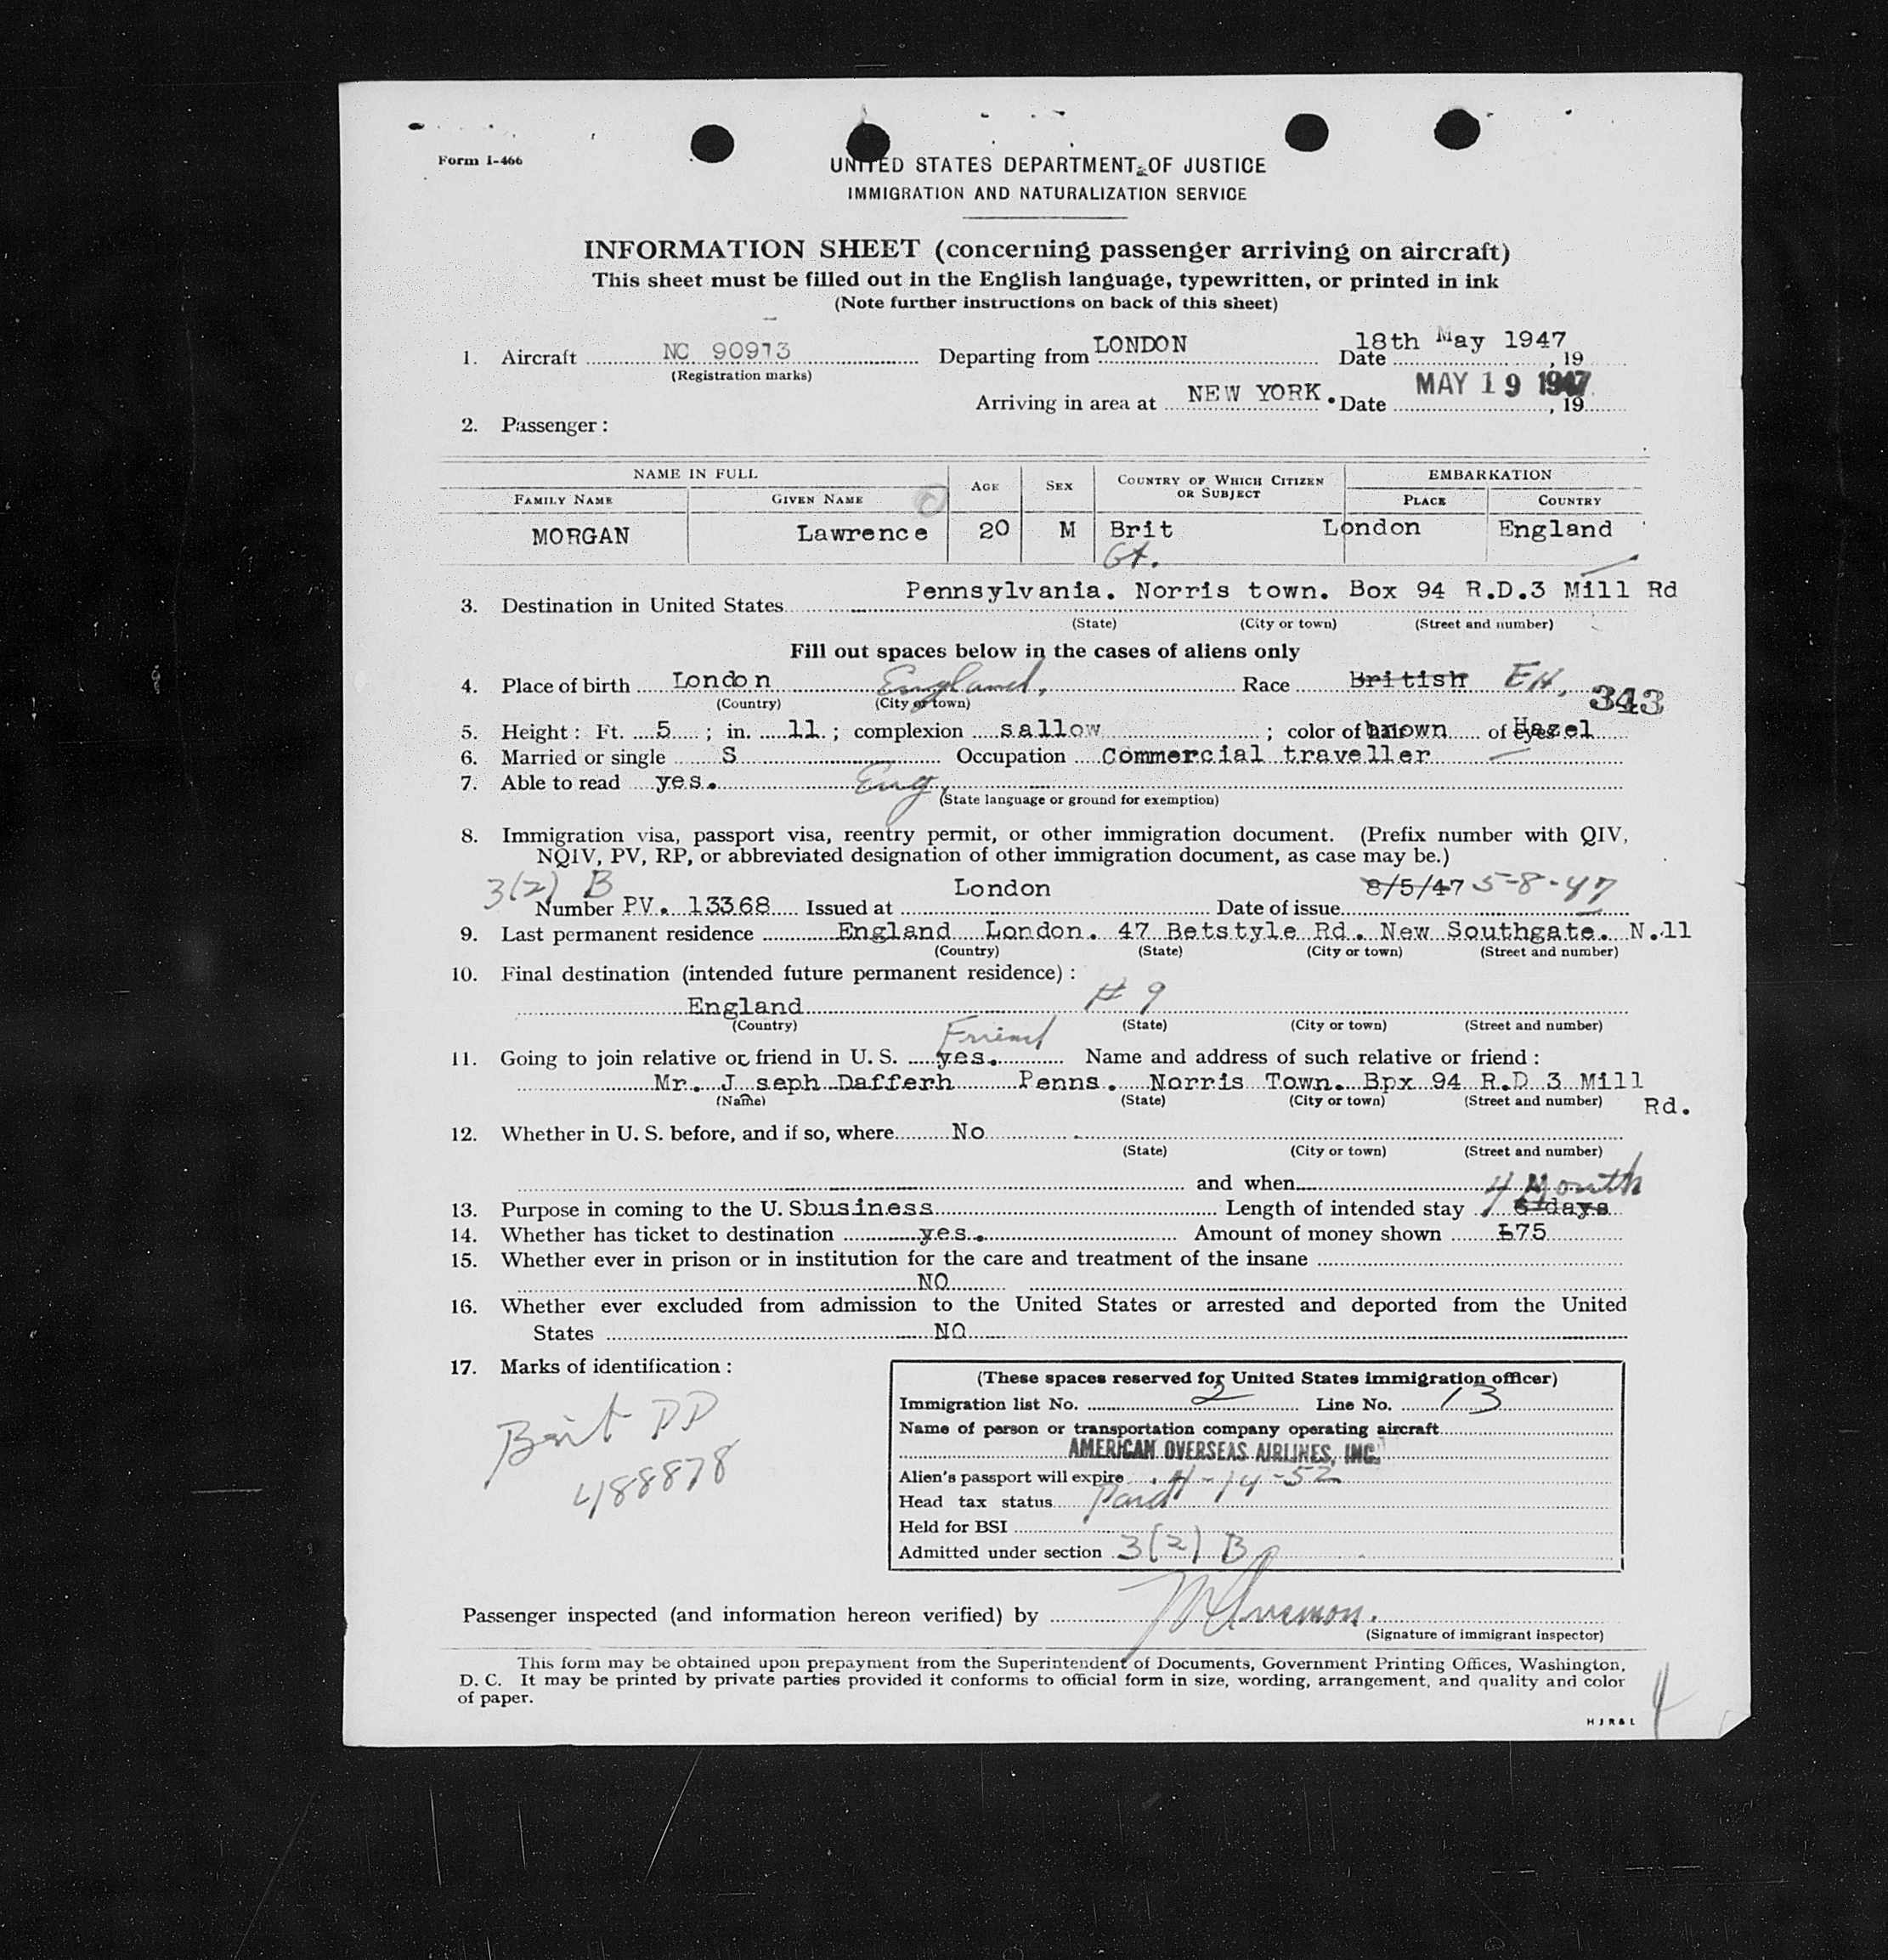 Form I-466
UNITED STATES DEPARTMENT OF JUSTICE
IMMIGRATION AND NATURALIZATION SERVICE
INFORMATION SHEET (concerning passenger arriving on aircraft)
This sheet must be filled out in the English language, typewritten, or printed in ink
(Note further instructions on back of this sheet)
1. Aircraft NC 90913 Departing from LONDON Date 18th May 1947, 19
(Registration marks)
Arriving in area at NEW YORK. Date MAY 19 1947, 19
2. Passenger:
NAME IN FULL AGE SEX COUNTRY OF WHICH CITIZEN OR SUBJECT EMBARKATION
FAMILY NAME GIVEN NAME PLACE COUNTRY
MORGAN Lawrence 20 M Brit London England
Gt.
3. Destination in United States Pennsylvania. Norris town. Box 94 R.D.3 Mill Rd
(State) (City or town) (Street and number)
Fill out spaces below in the cases of aliens only
4. Place of birth London England, Race British EH,
(Country) (City or town)
343
5. Height: Ft. 5; in. 11; complexion sallow; color of hair brown of eyes Hazel
6. Married or single S Occupation Commercial traveller
7. Able to read yes. Eng
(State language or ground for exemption)
8. Immigration visa, passport visa, reentry permit, or other immigration document. (Prefix number with QIV,
NQIV, PV, RP, or abbreviated designation of other immigration document, as case may be.)
3(2) B
Number PV. 13368 Issued at London Date of issue 8/5/47 5-8-47
9. Last permanent residence England London. 47 Betstyle Rd. New Southgate. N.11
(Country) (State) (City or town) (Street and number)
10. Final destination (intended future permanent residence):
England # 9
(Country) (State) (City or town) (Street and number)
Friend
11. Going to join relative or friend in U. S. yes. Name and address of such relative or friend:
Mr. J seph Dafferh Penns. Norris Town. Bpx 94 R.D 3 Mill
(Name) (State) (City or town) (Street and number) Rd.
12. Whether in U. S. before, and if so, where No
(State) (City or town) (Street and number)
and when
4 Month
13. Purpose in coming to the U. S business Length of intended stay days
14. Whether has ticket to destination yes. Amount of money shown £75
15. Whether ever in prison or in institution for the care and treatment of the insane
NO
16. Whether ever excluded from admission to the United States or arrested and deported from the United
States NO
17. Marks of identification:
Brit PP
488878
(These spaces reserved for United States immigration officer)
Immigration list No. 2 Line No. 13
Name of person or transportation company operating aircraft
AMERICAN OVERSEAS AIRLINES, INC.
Alien's passport will expire 4-14-52
Head tax status Paid
Held for BSI
Admitted under section 3(2) B
Passenger inspected (and information hereon verified) by
(Signature of immigrant inspector)
This form may be obtained upon prepayment from the Superintendent of Documents, Government Printing Offices, Washington,
D. C. It may be printed by private parties provided it conforms to official form in size, wording, arrangement, and quality and color
of paper.
H J R & L
4